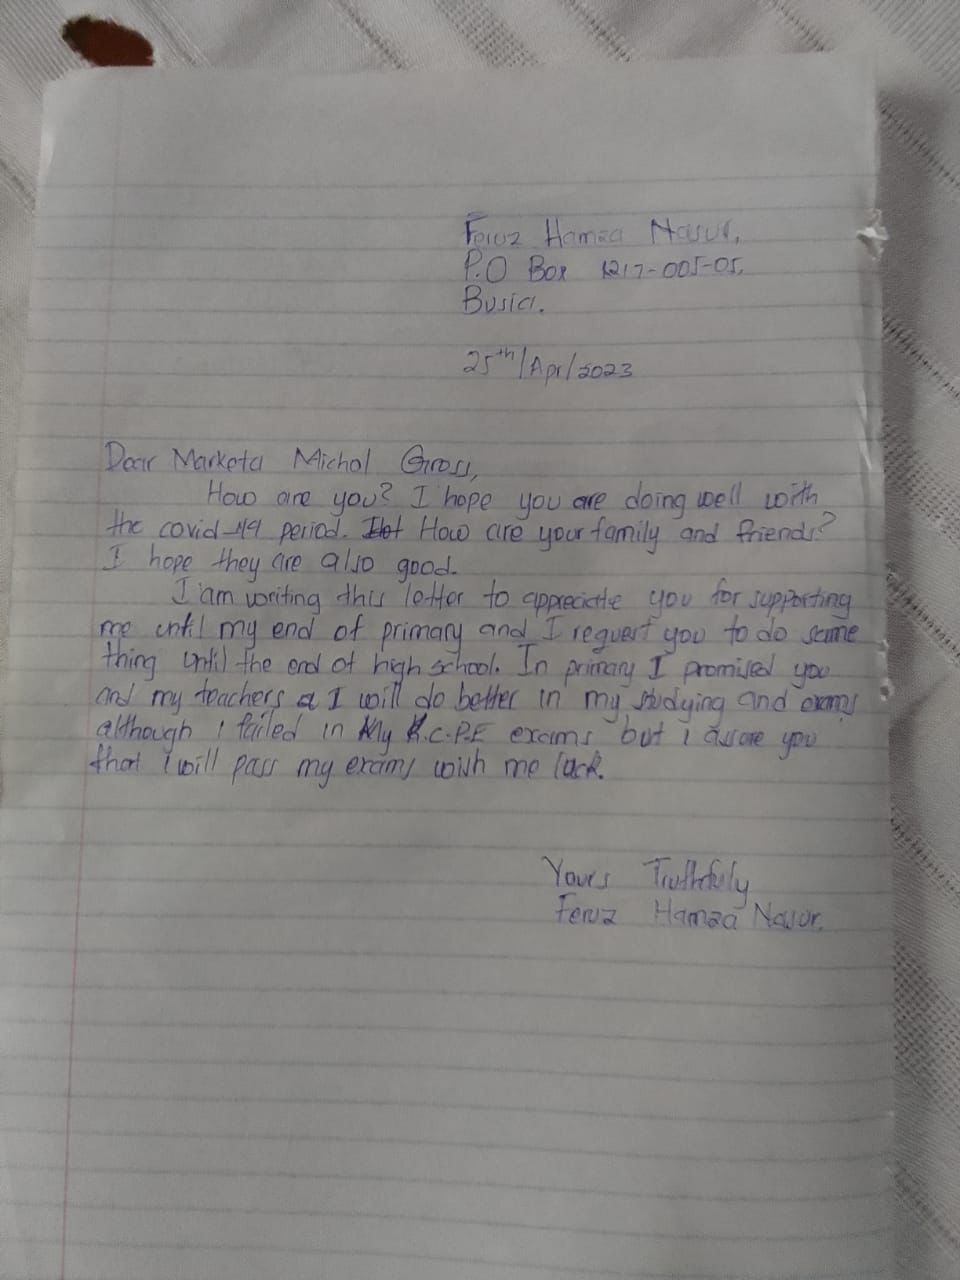 Feruz Hamza Nasur,
P.O Box 1217-005-05,
Busia.
25th/Apr/2023
Dear Marketa Michal Gross,
How are you? I hope you are doing well with
the covid-19 period. How are your family and friends?
I hope they are also good.
I'am writing this letter to appreciate you for supporting
me until my end of primary and I request you to do same
thing until the end of high school. In primary I promised you
and my teachers I will do better in my studying and exams
although I failed in My K.C.P.E exams but i assure you
that i will pass my exams wish me luck.
Yours Truthfuly
Feruz Hamza Nasur.